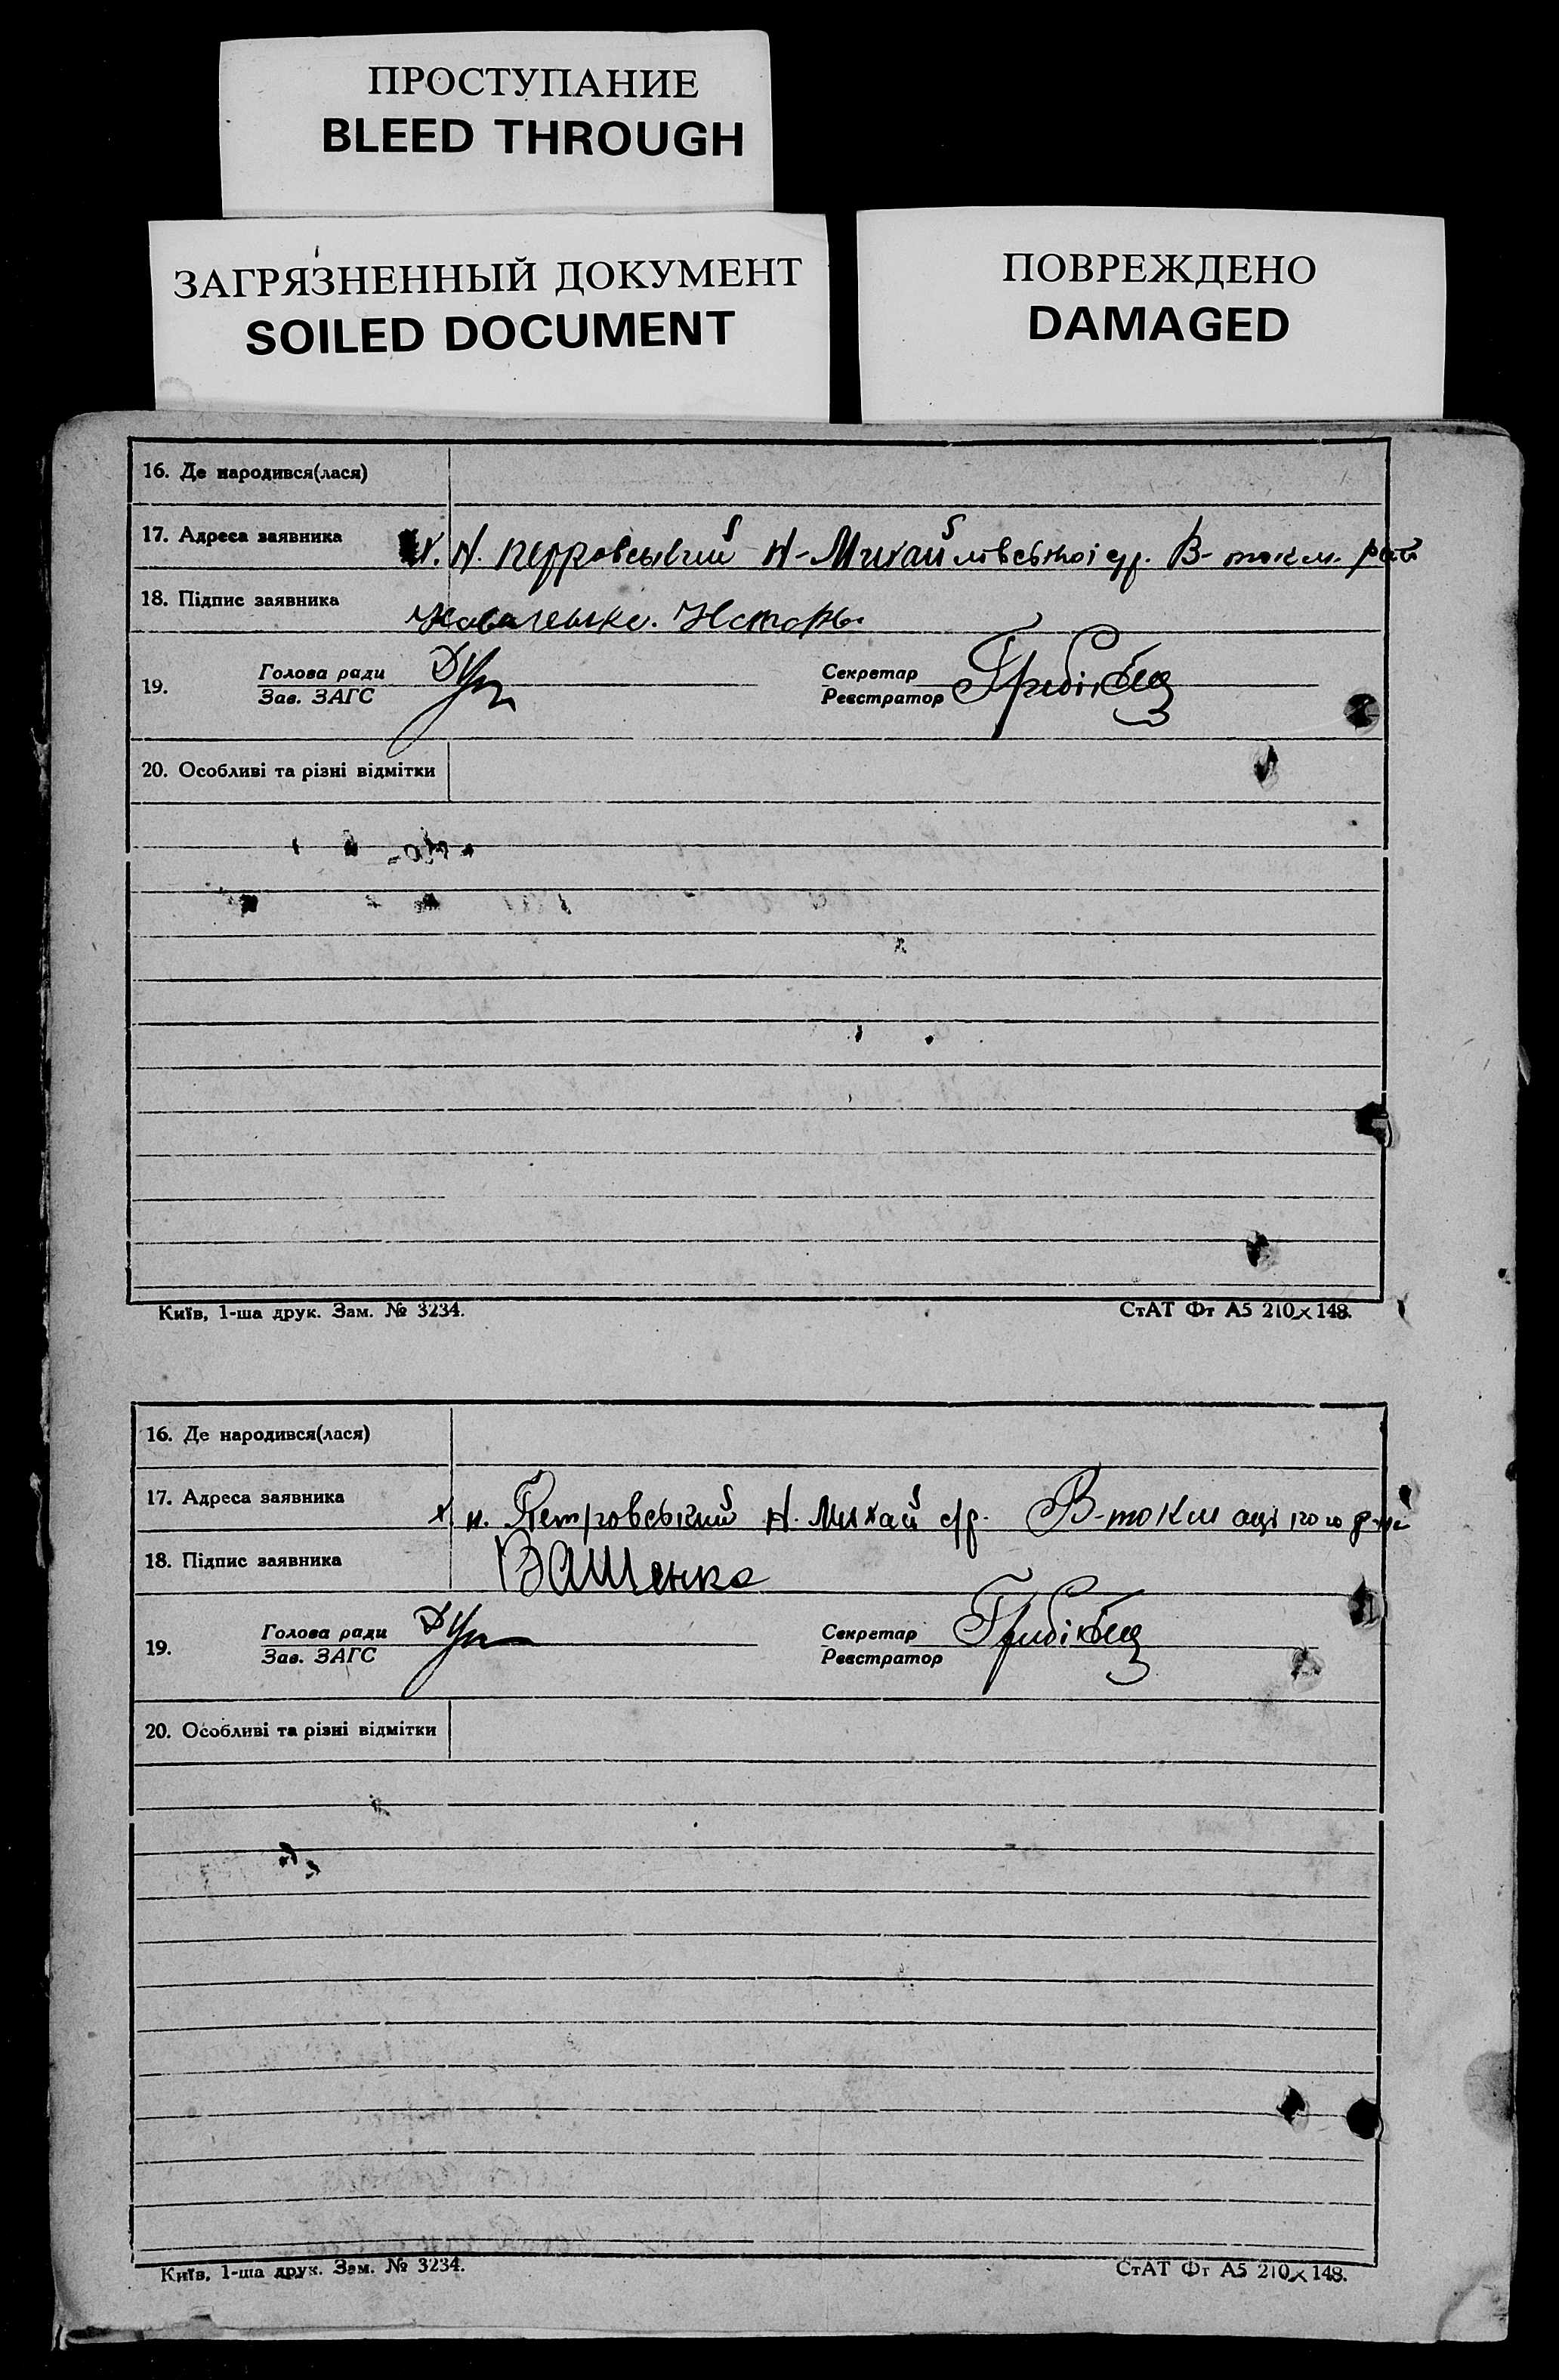 ПРОСТУПАНИЕ
BLEED THROUGH
ЗАГРЯЗНЕННЫЙ ДОКУМЕНТ
SOILED DOCUMENT
ПОВРЕЖДЕНО
DAMAGED
16. Де народився(лася)
17. Адреса заявника х. Н. Петровський Н-Михайловської с/р. В-токм. рай
18. Підпис заявника Коваленко.
19. Голова ради Секретар
Зав. ЗАГС Реєстратор
20. Особливі та різні відмітки
Київ, 1-ша друк. Зам. № 3234. СтАТ Фт А5 210×148.
16. Де народився(лася)
17. Адреса заявника х. н. Петровський Н. Михай с/р. В-токмацького р-ну
18. Підпис заявника Ващенко
19. Голова ради Секретар
Зав. ЗАГС Реєстратор
20. Особливі та різні відмітки
Київ, 1-ша друк. Зам. № 3234. СтАТ Фт А5 210×148.